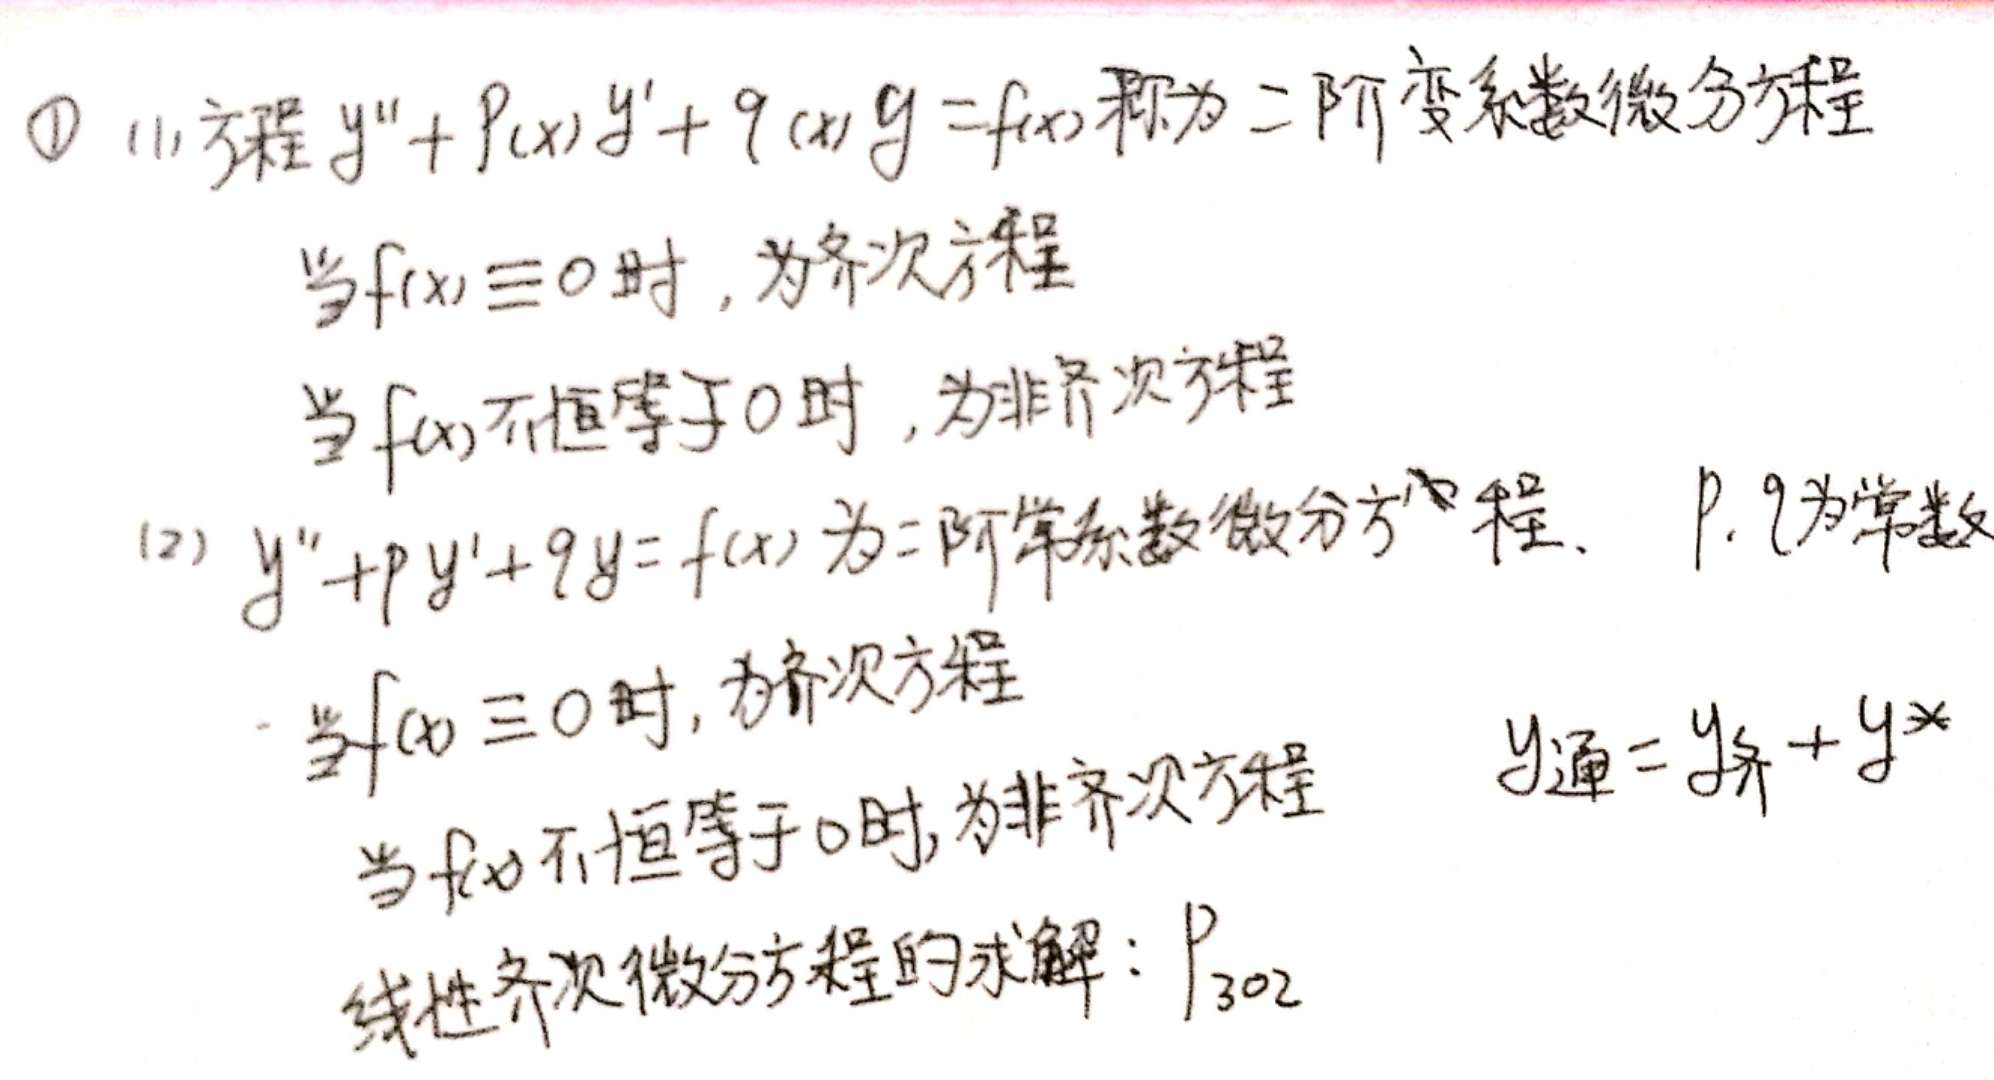 ① (1) 方程 y''+P(x)y'+q(x)y=f(x)称为二阶变系数微分方程
当f(x)≡0时,为齐次方程
当f(x)不恒等于0时,为非齐次方程
(2) y''+py'+qy=f(x)为二阶常系数微分方程、 P.q为常数
当f(x)≡0时,为齐次方程
y通=y齐+y*
当f(x)不恒等于0时,为非齐次方程
线性齐次微分方程的求解:P302